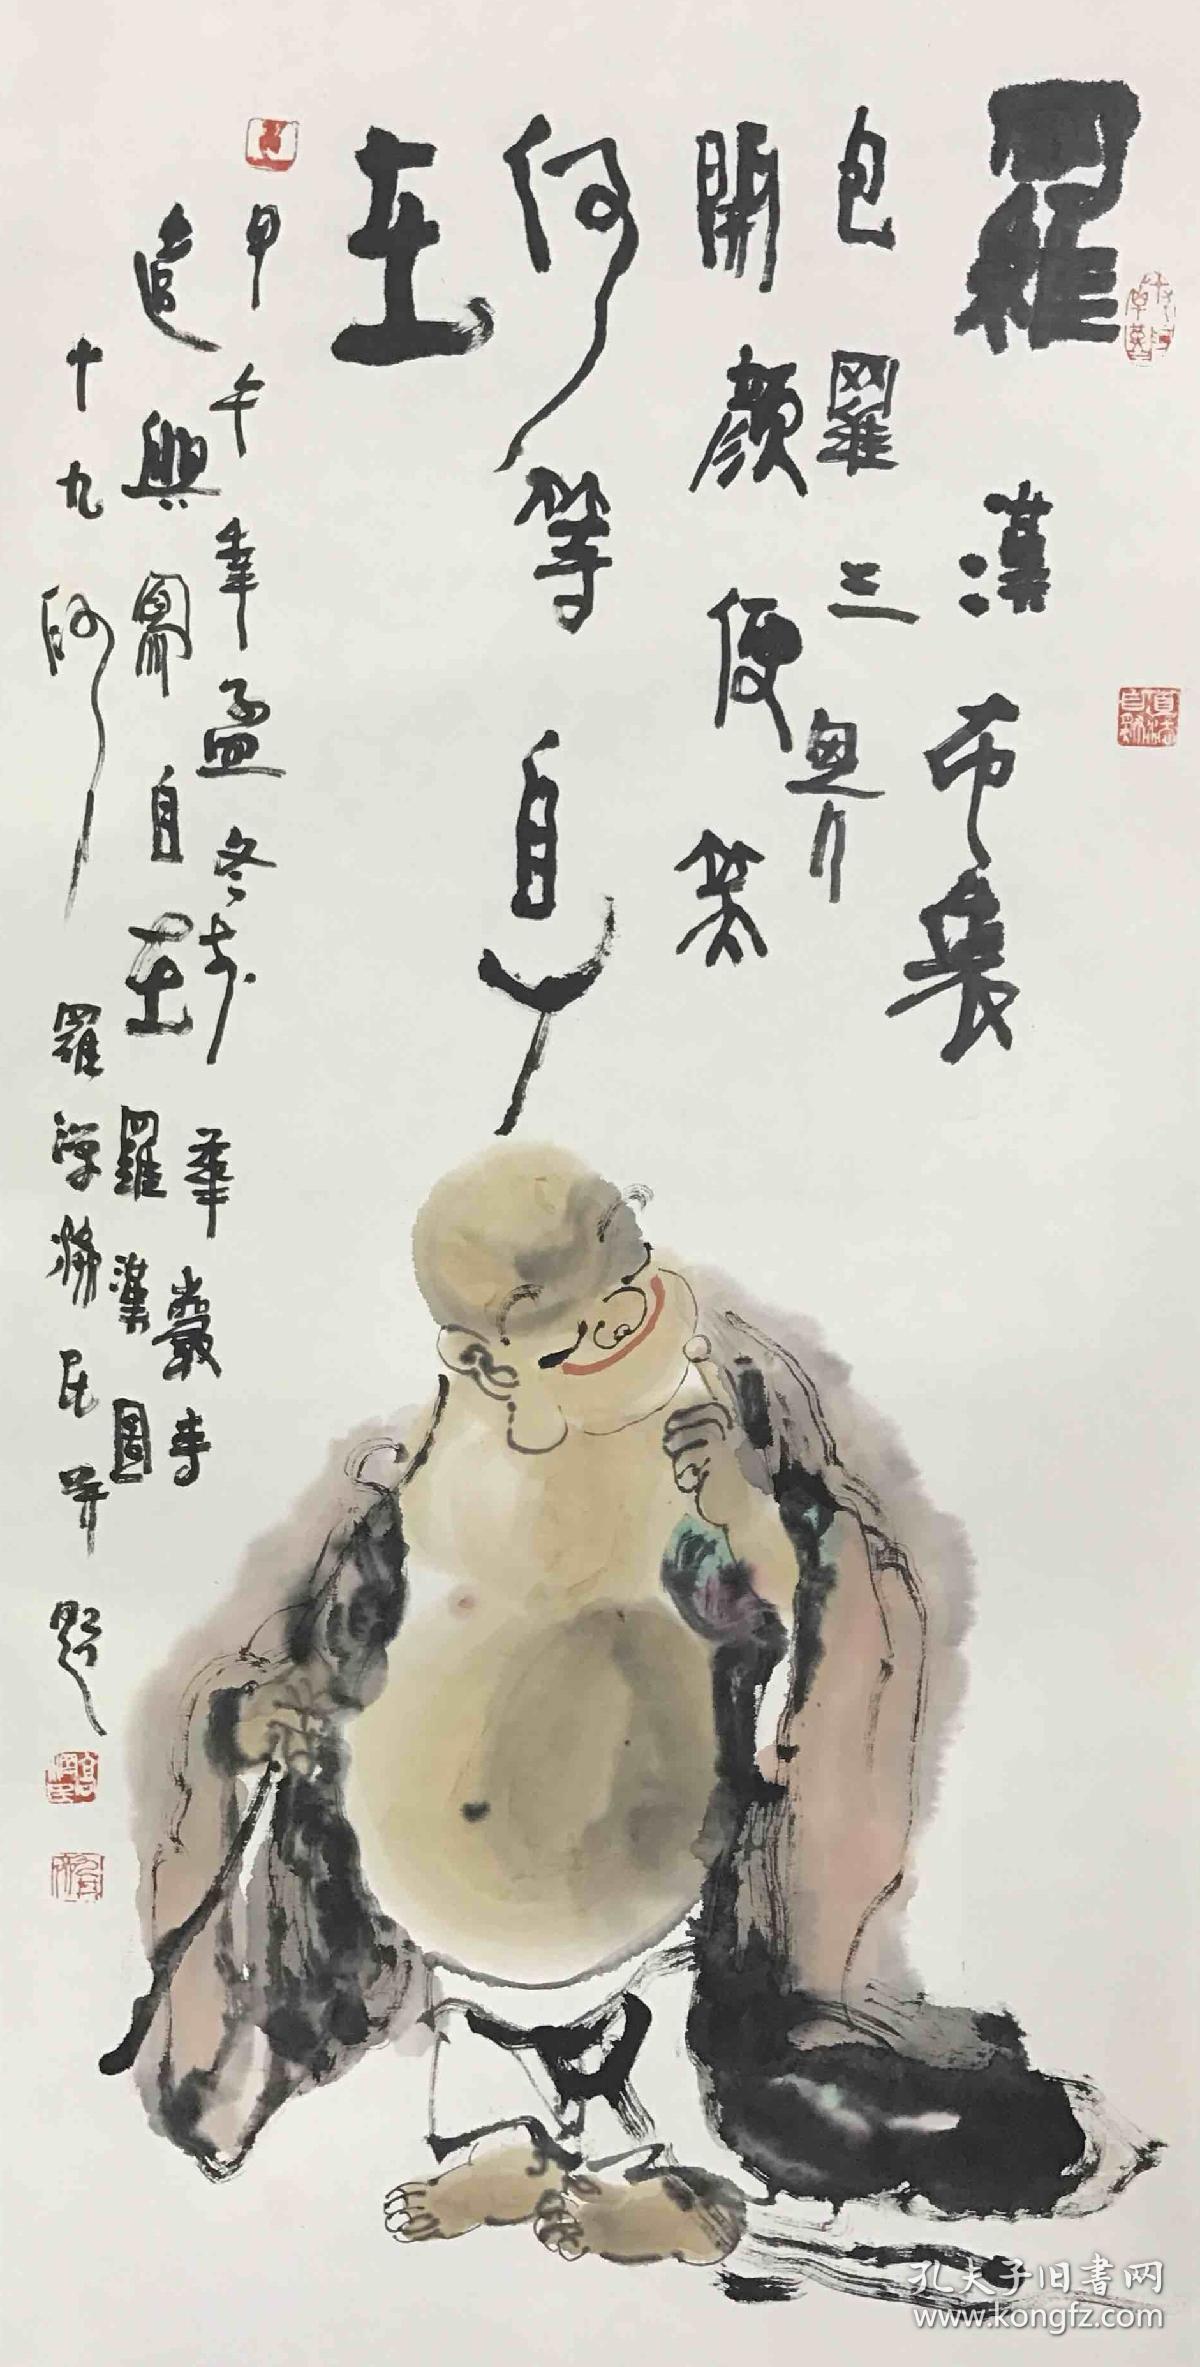 羅漢布袋
包羅三界
開顏便笑
何等自在
甲午年孟冬於華嚴寺
造興寫自在羅漢圖
十九阿羅漢
民并題
孔夫子旧書网
www.kongfz.com